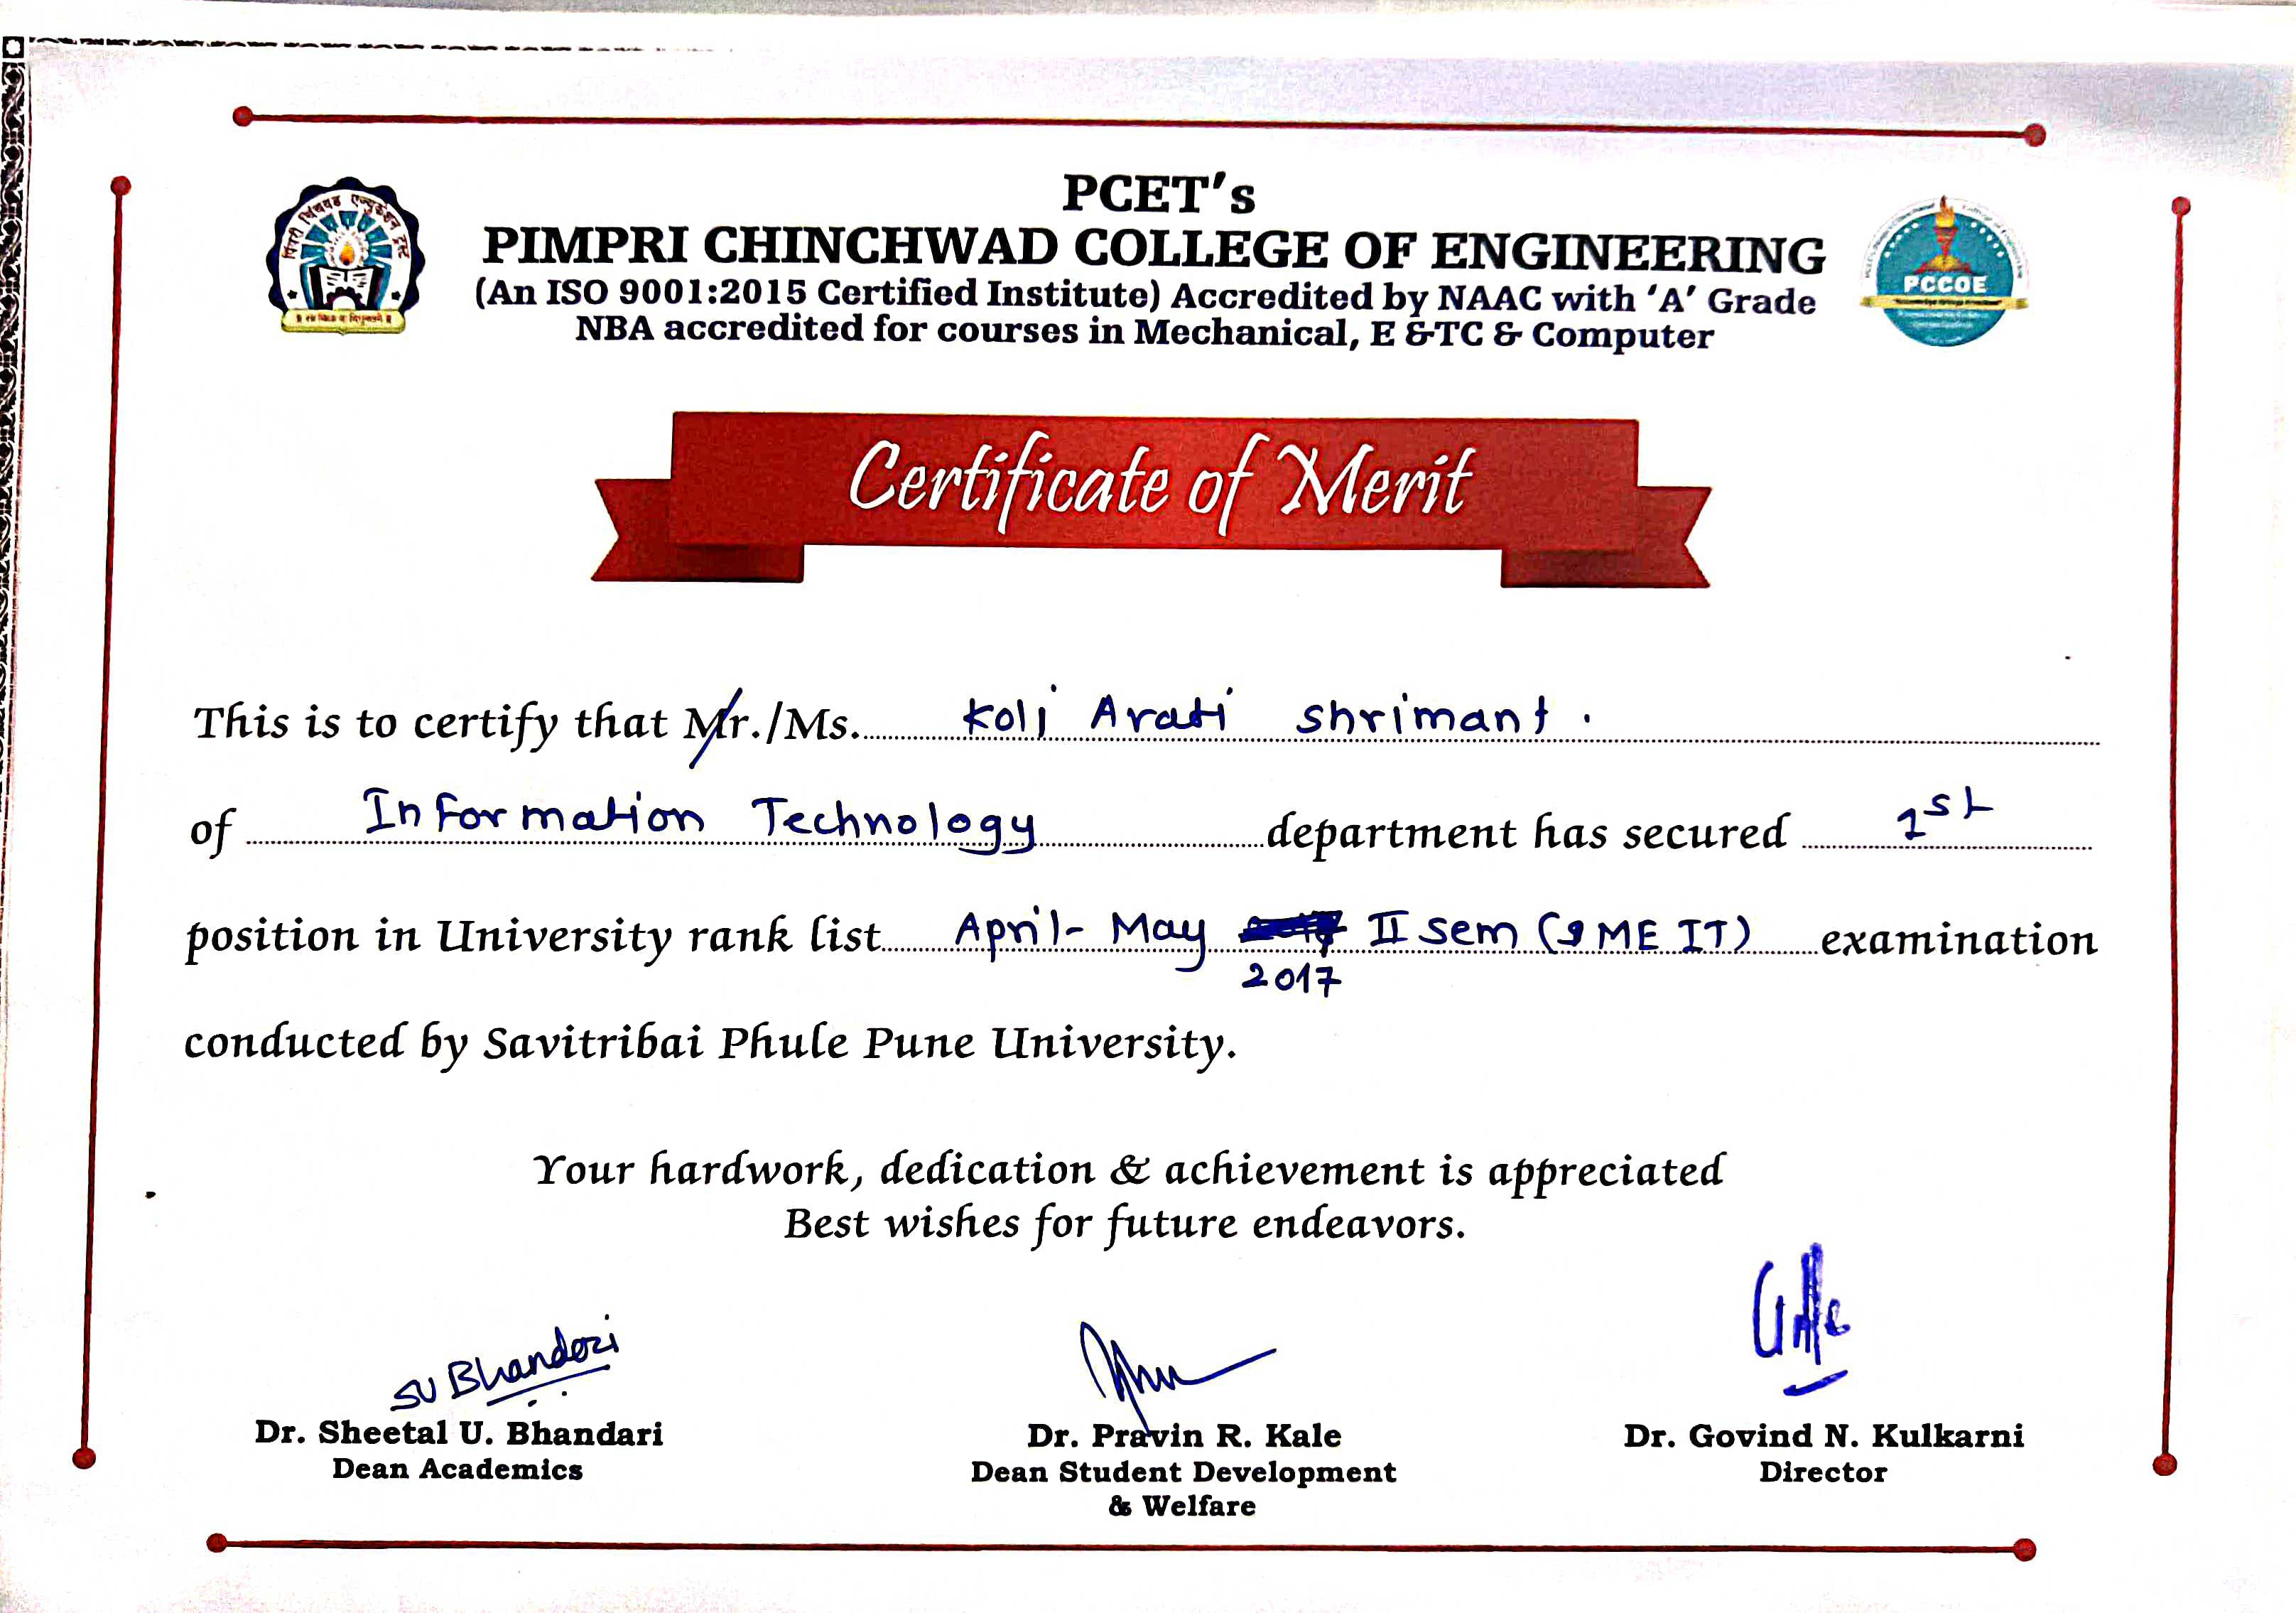 PCET's
PIMPRI CHINCHWAD COLLEGE OF ENGINEERING
(An ISO 9001:2015 Certified Institute) Accredited by NAAC with 'A' Grade
NBA accredited for courses in Mechanical, E &TC & Computer
पिंपरी चिंचवड एज्युकेशन ट्रस्ट
PCCOE
Certificate of Merit
This is to certify that Mr./Ms. Koli Arati Shrimant.
of Information Technology department has secured 1st
position in University rank list April-May II Sem ( ME IT) examination
2017
conducted by Savitribai Phule Pune University.
Your hardwork, dedication & achievement is appreciated
Best wishes for future endeavors.
SU Bhandari
Dr. Sheetal U. Bhandari
Dean Academics
Dr. Pravin R. Kale
Dean Student Development
& Welfare
Dr. Govind N. Kulkarni
Director